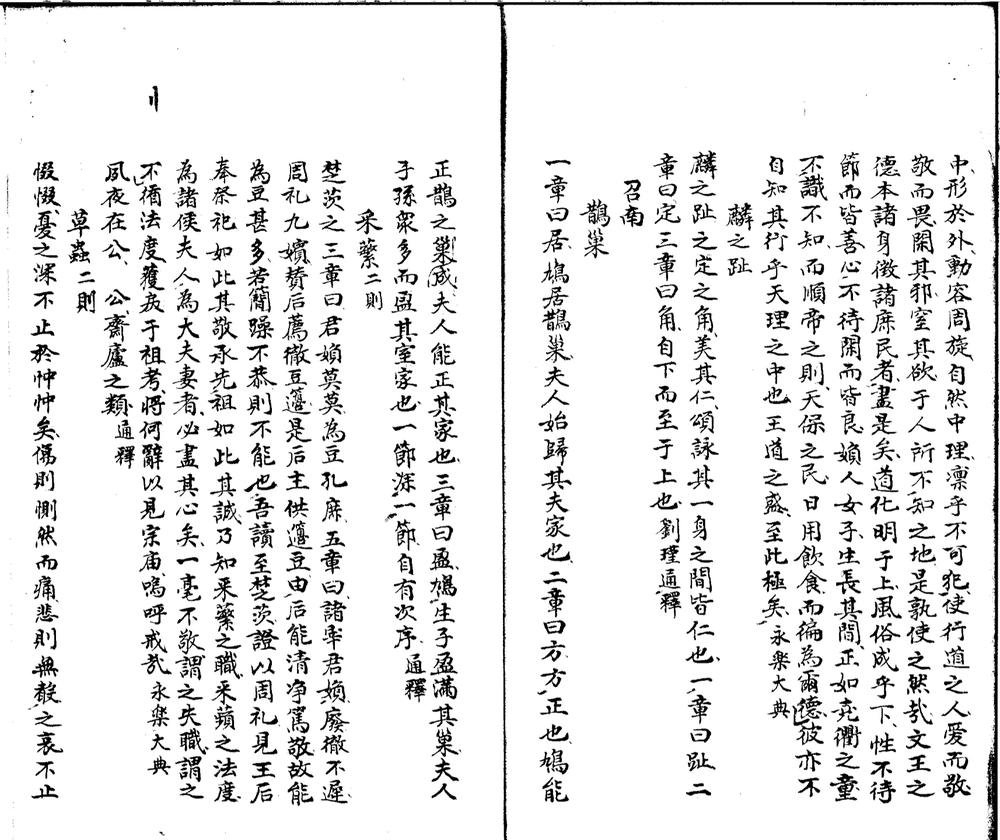 中形於外動容周旋自然中理凛乎不可犯使行道之人爱而敬
敬而畏閑其邪窒其欲于人所不知之地是孰使之然哉文王之
德本諸身徵諸庶民者盡是矣道化明于上風俗成乎下性不待
節而皆善心不待閑而皆良媍人女子生長其間正如尭衢之童
不識不知而順帝之則天保之民日用飲食而徧為爾德彼亦不
自知其行乎天理之中也王道之盛至此極矣永樂大典
麟之趾
麟之趾之定之角美其仁頌詠其一身之間皆仁也一章曰趾二
章曰定三章曰角自下而至于上也劉瑾通釋
召南
鵲巢
一章曰居鳩居鵲巢夫人始歸其夫家也二章曰方方正也鳩能
正鵲之巢成夫人能正其家也三章曰盈鳩生子盈滿其巢夫人
子孫衆多而盈其室家也一節深一節自有次序通釋
采蘩二則
楚茨之三章曰君媍莫莫為豆孔庶五章曰諸宰君媍廢徹不遲
周礼九嬪賛后薦徹豆籩是后主供籩豆由后能清净篤敬故能
為豆甚多若簡躁不恭則不能也吾讀至楚茨證以周礼見王后
奉祭祀如此其敬承先祖如此其誠乃知采蘩之職采蘋之法度
為諸侯夫人為大夫妻者必盡其心矣一毫不敬謂之失職謂之
不循法度獲戾于祖考將何辭以見宗庙嗚呼戒哉永樂大典
夙夜在公公齋廬之類通釋
草蟲二則
惙惙憂之深不止於忡忡矣傷則惻然而痛悲則無聲之哀不止